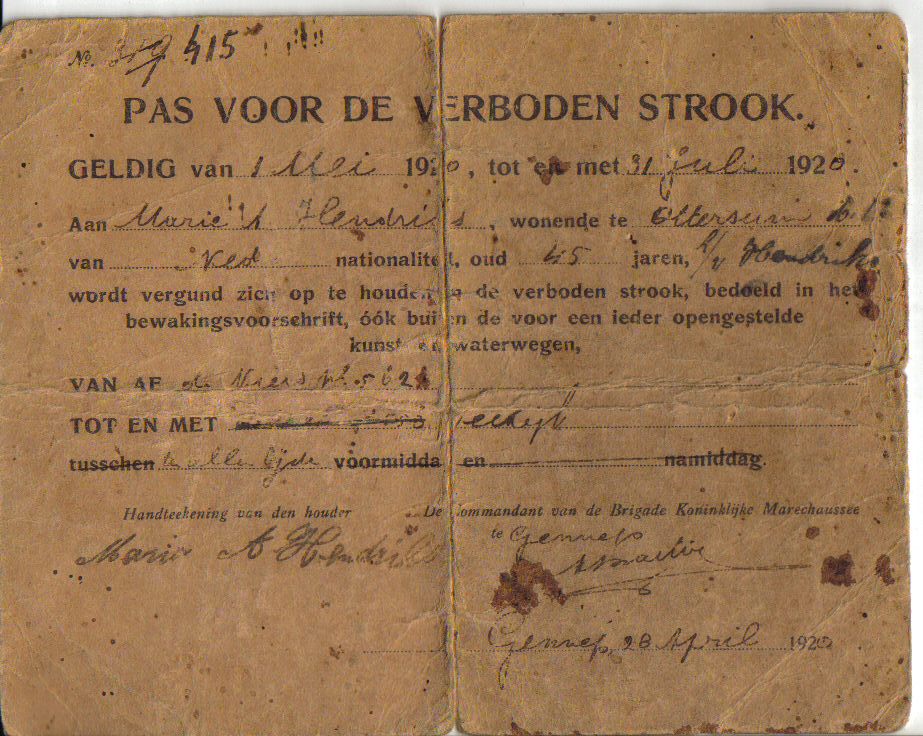 No. 415
PAS VOOR DE VERBODEN STROOK.
GELDIG van 1 Mei 1920, tot en met 31 Juli 1920.
Aan Marie A Hendriks, wonende te Ottersum
van Ned nationaliteit, oud 45 jaren, Hendriks
wordt vergund zich op te houden in de verboden strook, bedoeld in het
bewakingsvoorschrift, óók buiten de voor een ieder opengestelde
kunst en waterwegen,
VAN AF de Niers
TOT EN MET
tusschen te allen tijde voormiddag en namiddag.
Handteekening van den houder De Commandant van de Brigade Koninklijke Marechaussee
te Gennep
Maria A Hendriks
Gennep, 28 April 1920